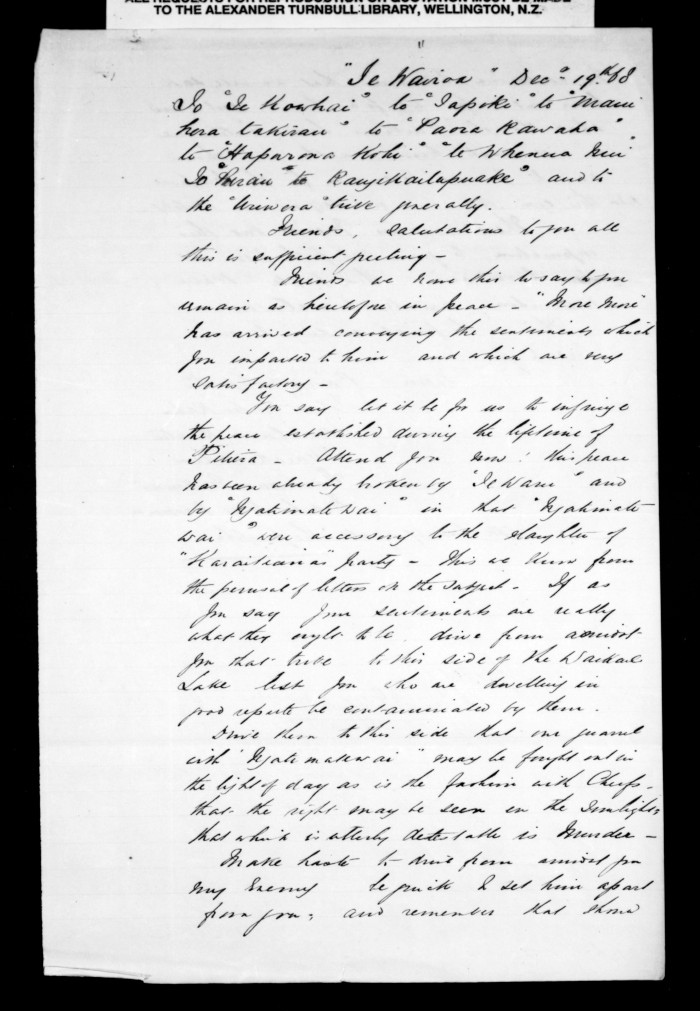 ALL REQUESTS FOR REPRODUCTION OR QUOTATION MUST BE MADE
TO THE ALEXANDER TURNBULL LIBRARY, WELLINGTON, N.Z.
"Te Wairoa" Decr 19th 68
To "Te Kowhai" to "Tapoki" to "Maui
hera takirau" to "Paora Rawaha"
to "Hapurona Kohi" "te Whenua Nui"
To "Perau" to Rangikaitapuake" and to
the "Uriwera" tribe generally.
Friends, salutations to you all
this is sufficient greeting -
Friends we have this to say to you
remain as heretofore in peace - "More More"
has arrived conveying the sentiments which
you imparted to him and which are very
satisfactory -
You say let it be for us to infringe
the peace established during the lifetime of
Pitiera - Attend you now! this peace
has been already broken by "Te Waru" and
by "Ngatimatewai" in that "Ngatimate
wai" were accessory to the slaughter of
"Karaitiana's" party - This we know from
the perusal of letters on the subject - If as
you say your sentiments are really
what they ought to be drive from amidst
you that tribe to this side of the Waikare
Lake lest you who are dwelling in
good repute be contaminated by them.
Drive them to this side that our quarrel
with "Ngatimatewai" may be fought out in
the light of day as is the fashion with Chiefs -
that the right may be seen in the Sunlight
that which is utterly detestable is Murder -
Make haste to drive from amidst you
my Enemy be quick & set him apart
from you; and remember that